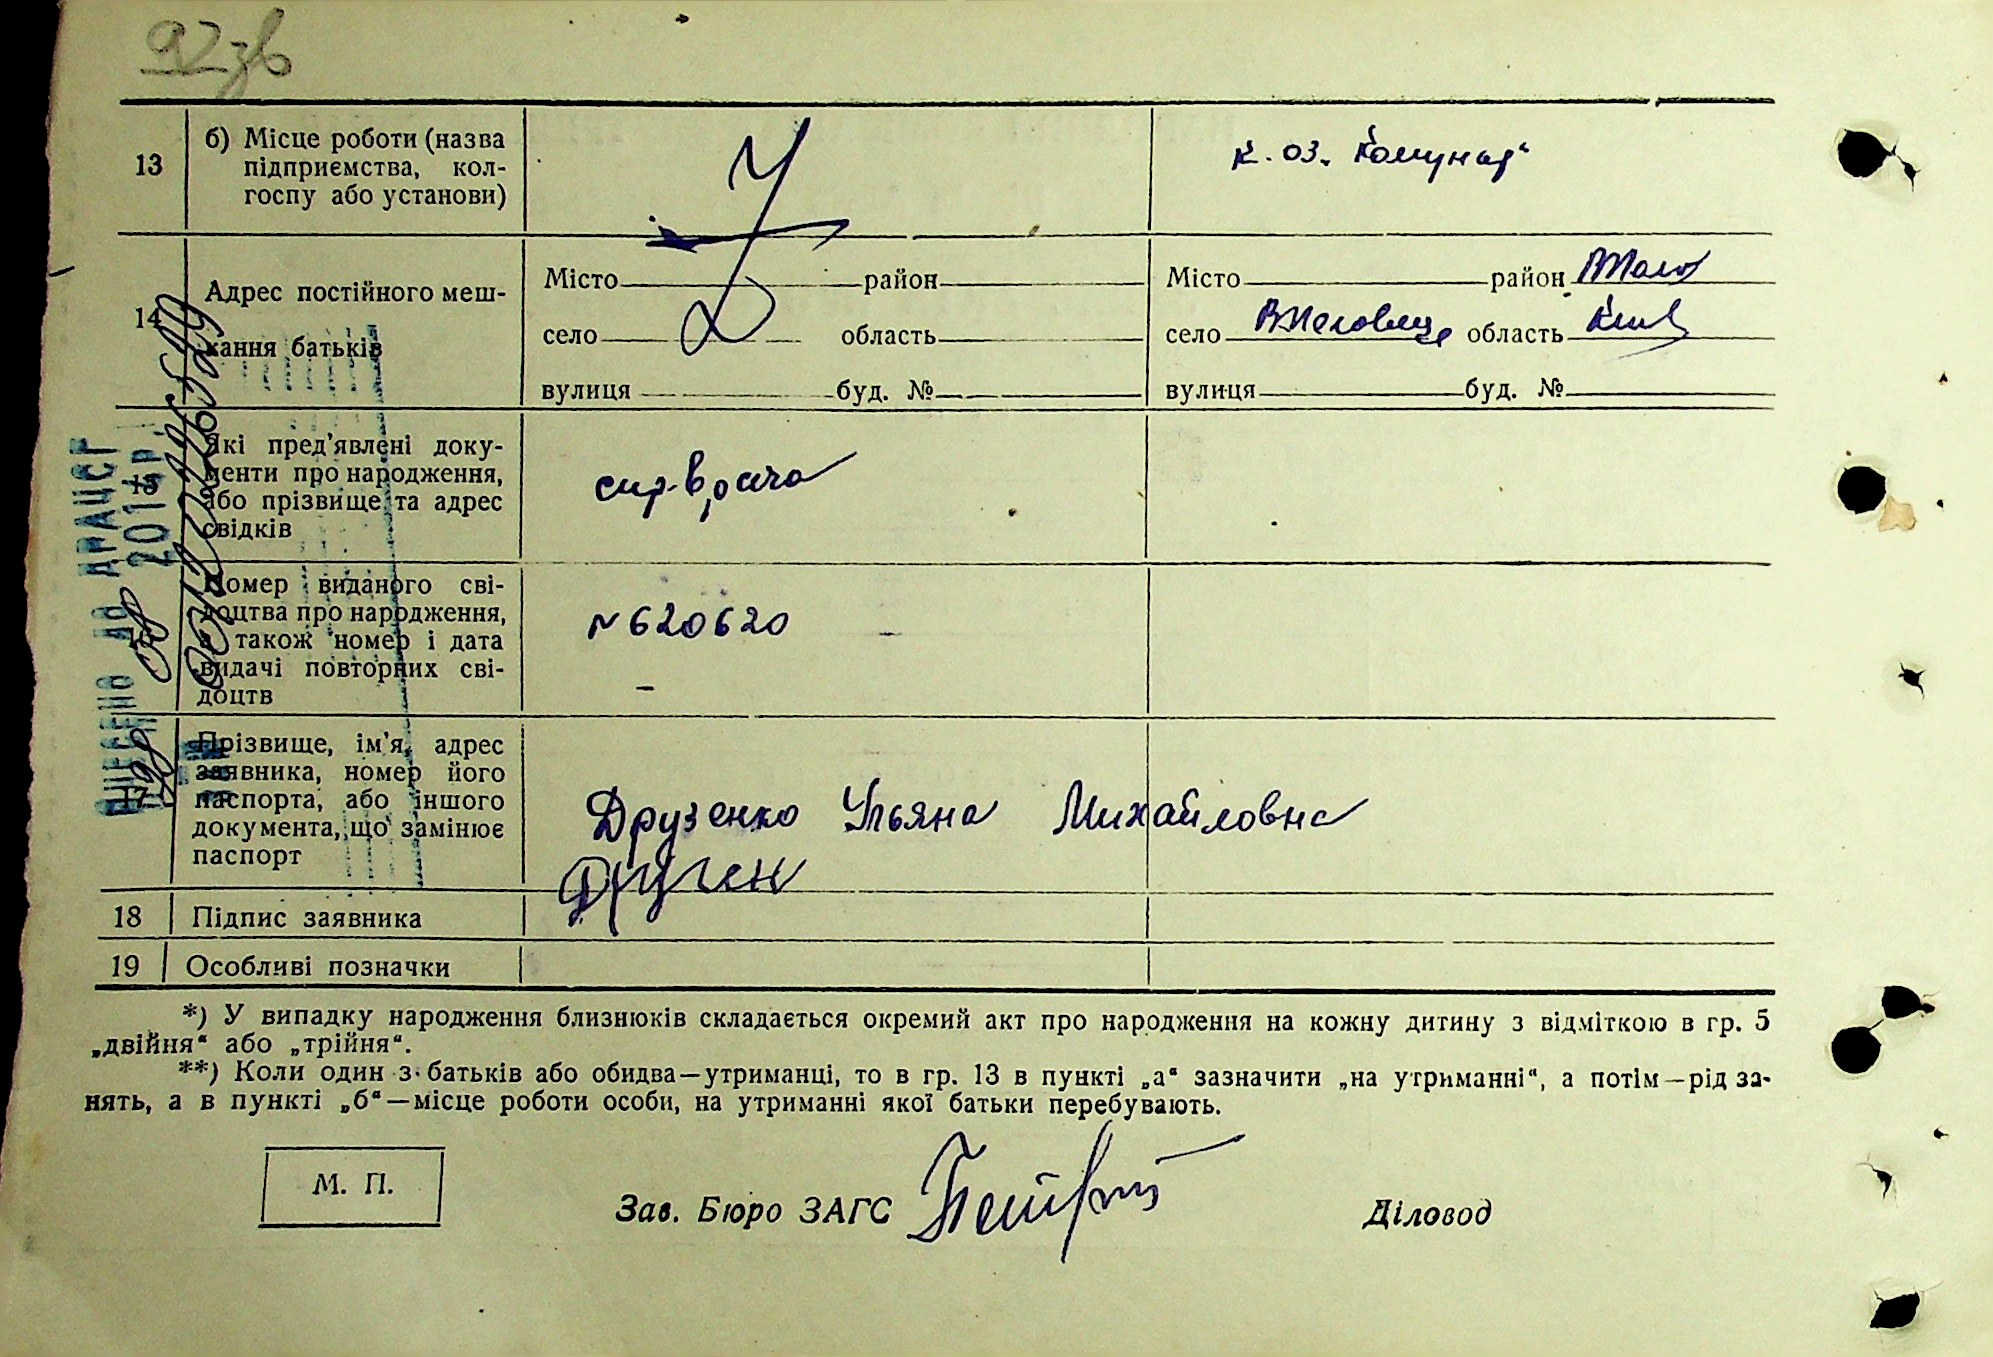 92зв
13
б) Місце роботи (назва
підприємства, кол-
госпу або установи)
к-оз „Комунар“
14
Адрес постійного меш-
кання батьків
Місто район
село область
вулиця буд. №
Місто район
село область Київ
вулиця буд. №
15
Які пред'явлені доку-
менти про народження,
або прізвище та адрес
свідків
спр. врача
Номер виданого сві-
доцтва про народження,
а також номер і дата
видачі повторних сві-
доцтв
N 620620
–
17
Прізвище, ім'я, адрес
заявника, номер його
паспорта, або іншого
документа, що замінює
паспорт
Друзенко Ульяна Михайловна
18
Підпис заявника
Друзен
19
Особливі позначки
ВНЕСЕНО ДО ДРАЦСГ
2014 р.
*) У випадку народження близнюків складається окремий акт про народження на кожну дитину з відміткою в гр. 5
„двійня“ або „трійня“.
**) Коли один з батьків або обидва—утриманці, то в гр. 13 в пункті „а“ зазначити „на утриманні“, а потім—рід за-
нять, а в пункті „б“—місце роботи особи, на утриманні якої батьки перебувають.
М. П.
Зав. Бюро ЗАГС
Діловод